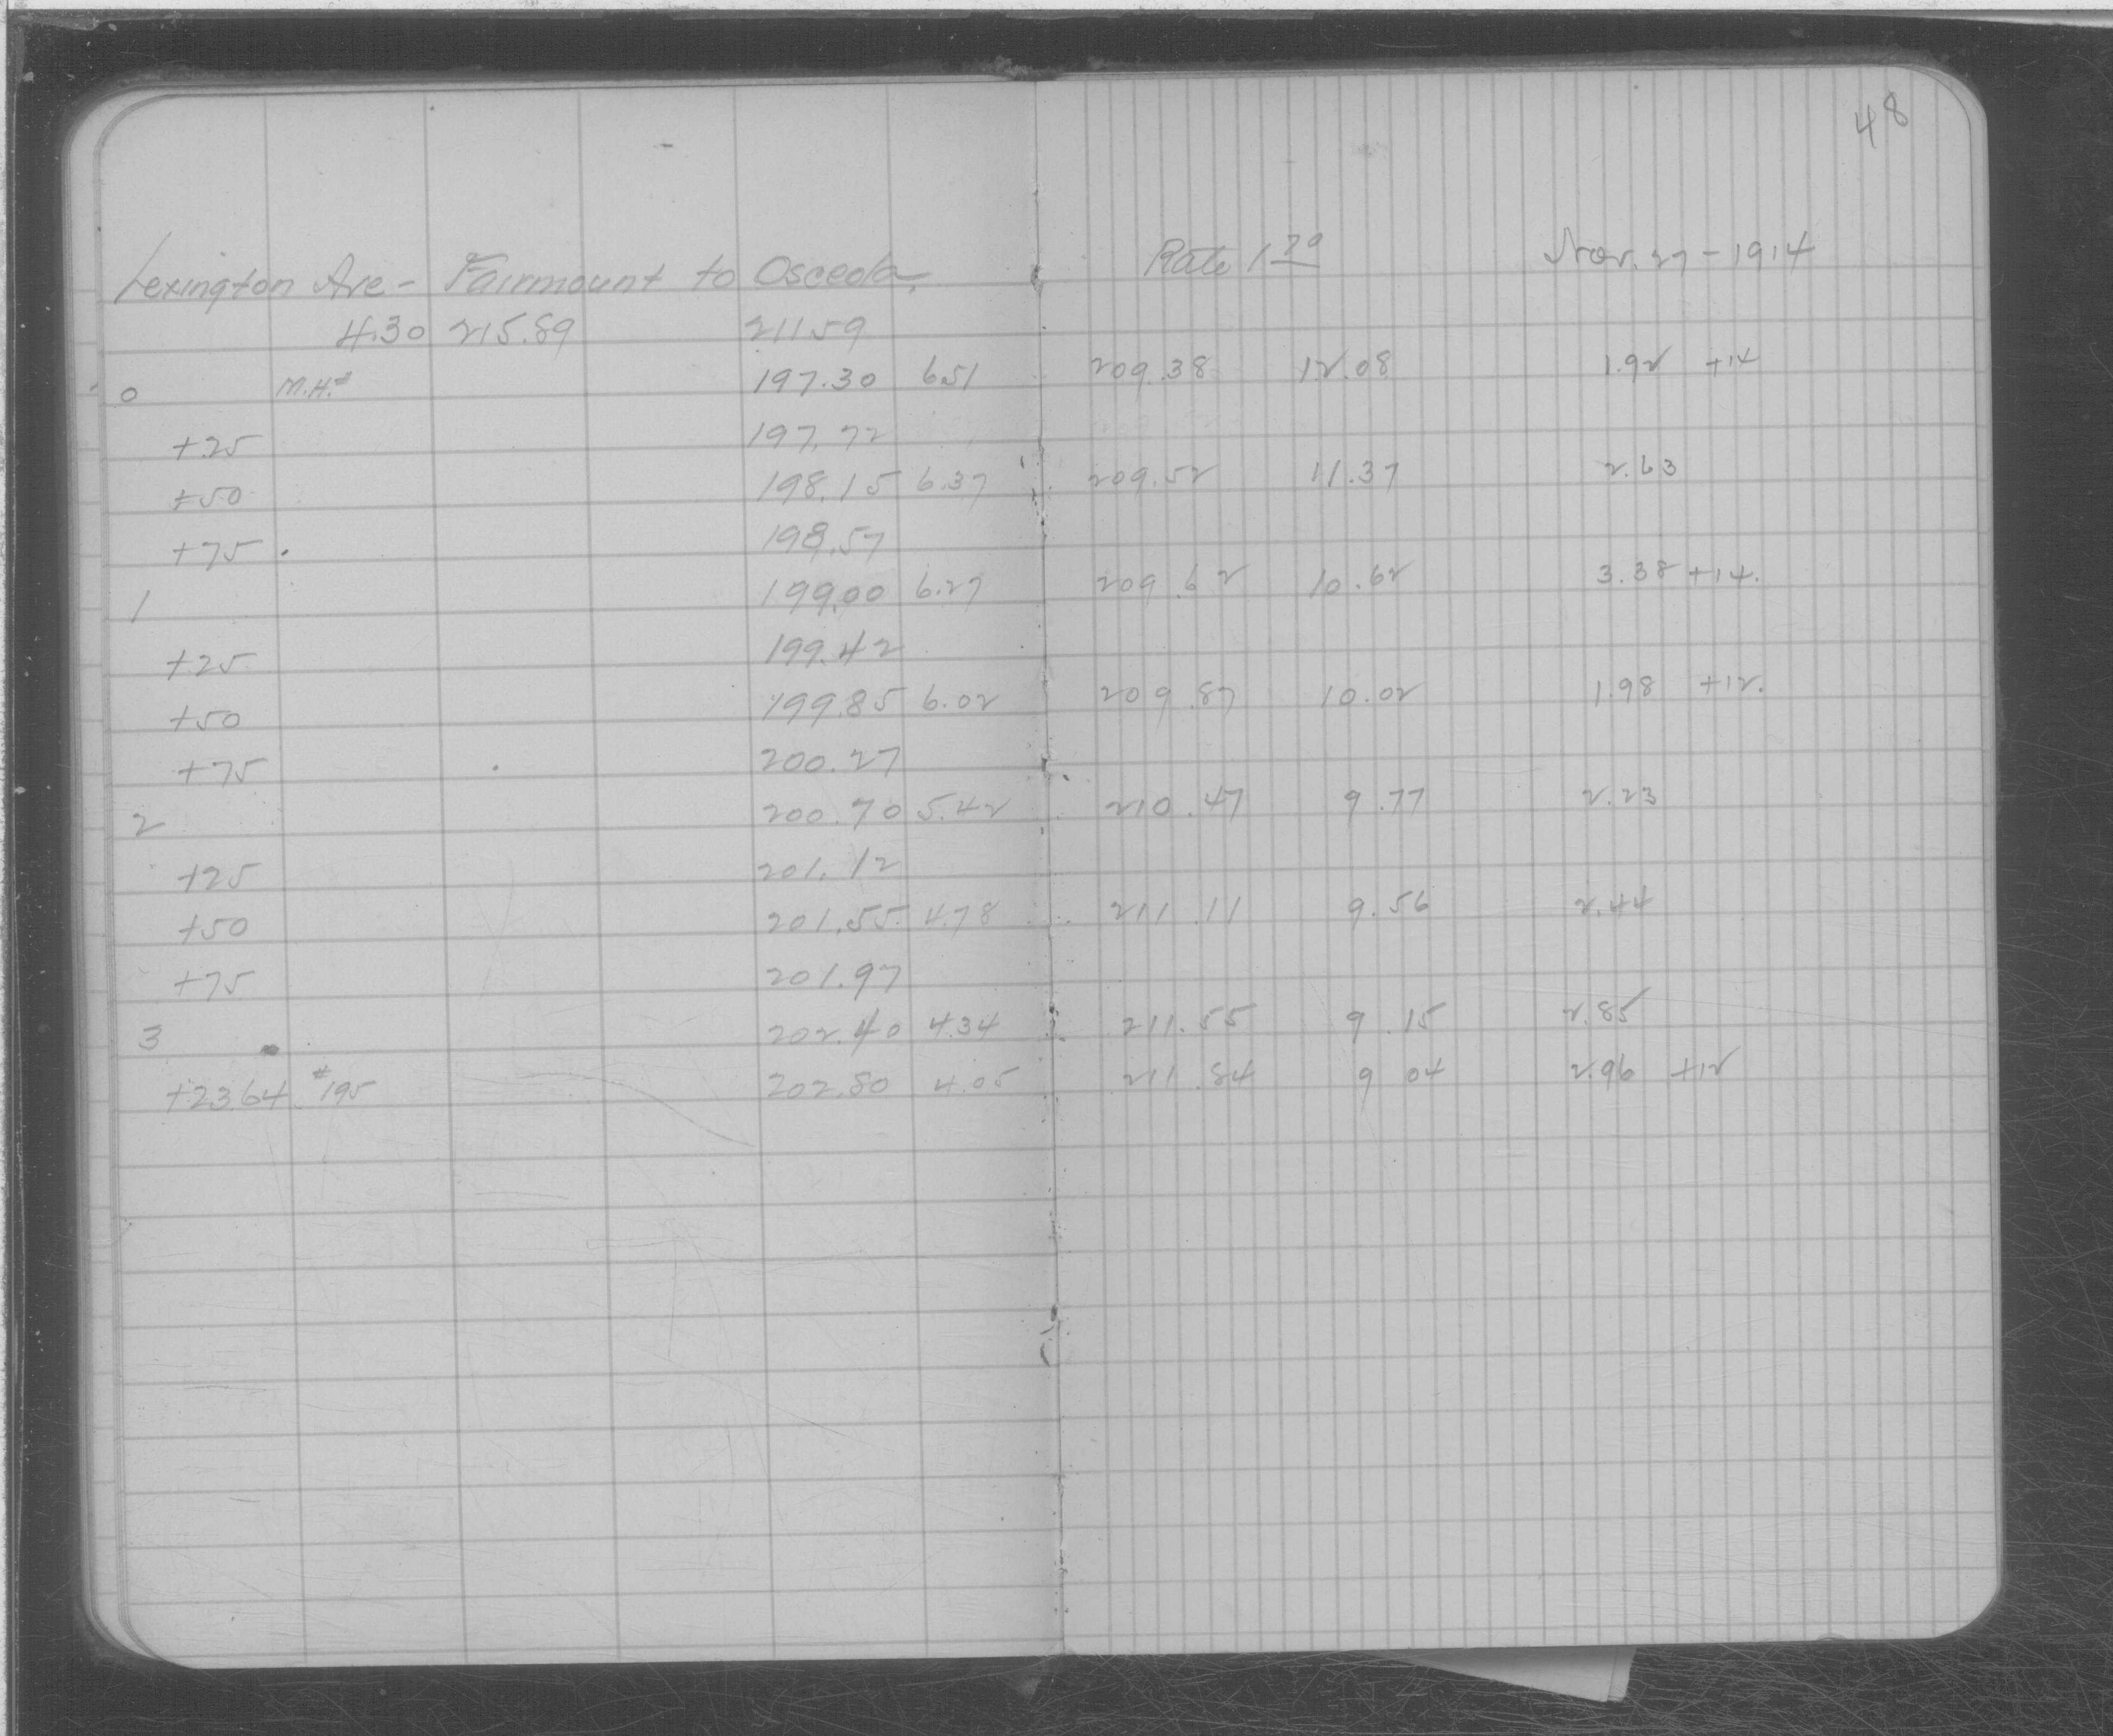 48
Lexington Ave - Fairmount to Osceola. Rate 1.70 Nov. 27 - 1914
4.30 215.89 211.59
0 M.H.# 197.30 6.51 209.38 12.08 1.92 +14
+25 197.72
+50 198.15 6.37 209.52 11.37 2.63
+75 198.57
1 199.00 6.27 209.62 10.62 3.38 +14.
+25 199.42
+50 199.85 6.02 209.87 10.02 1.98 +12.
+75 200.27
2 200.70 5.42 210.47 9.77 2.23
+25 201.12
+50 201.55 4.78 211.11 9.56 2.44
+75 201.97
3 202.40 4.34 211.55 9.15 2.85
+23.64 #195 202.80 4.05 211.84 9 04 2.96 +12